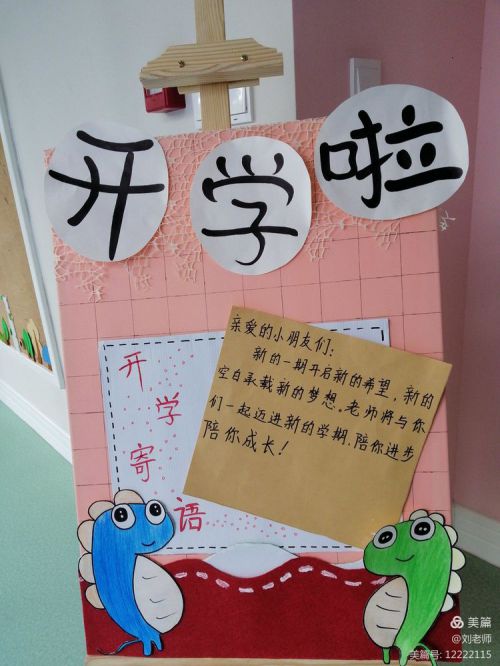 开学啦
亲爱的小朋友们:
新的一期开启新的希望，新的
空白承载新的梦想。老师将与你
们一起迈进新的学期，陪你进步
陪你成长！
开
学
寄
语
美篇
@刘老师
美篇号: 12222115